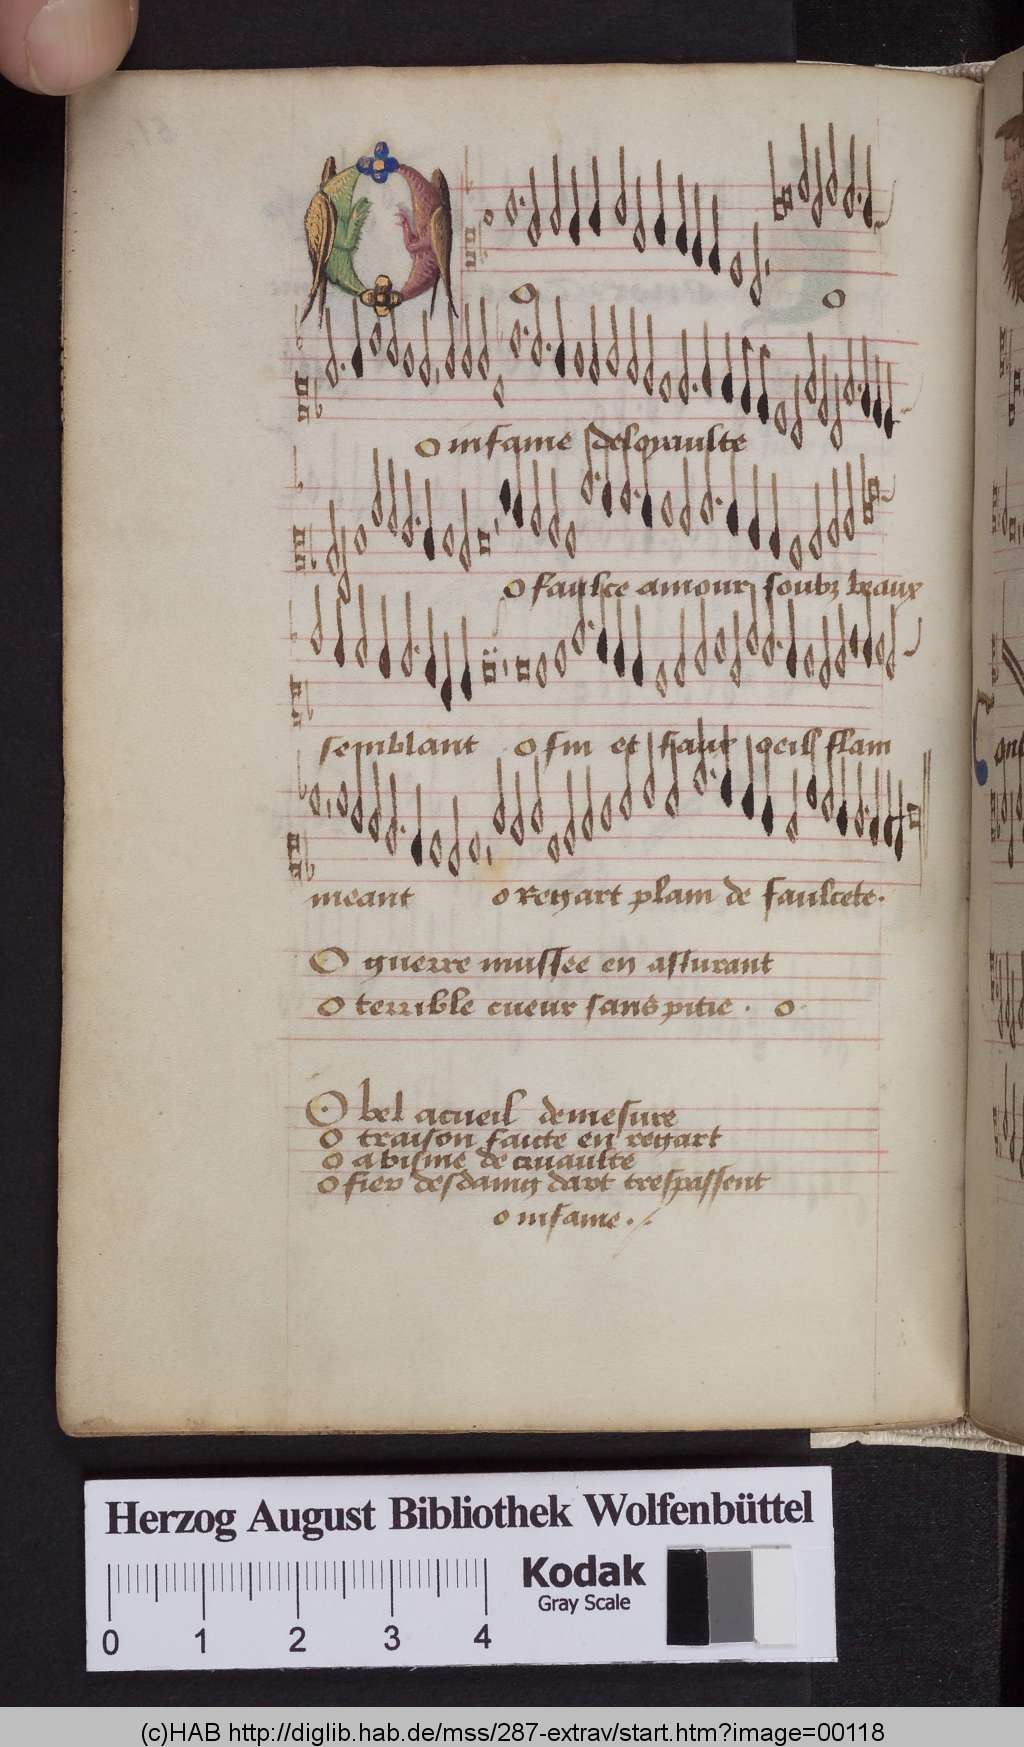 O O
O infame desloyaulte
O faulce amour soubz beaux
semblant O fin et hault oeill flam
meant O Regart plain de faulcete.
O guerre mussee en assurant
O terrible cueur sans pitie . O
O bel acueil demesure
O traison faicte en regart
O abisme de cruaulte
O fier desdaing dart trespassent
O infame ./.
Herzog August Bibliothek Wolfenbüttel
Kodak
Gray Scale
0 1 2 3 4
(c)HAB http://diglib.hab.de/mss/287-extrav/start.htm?image=00118